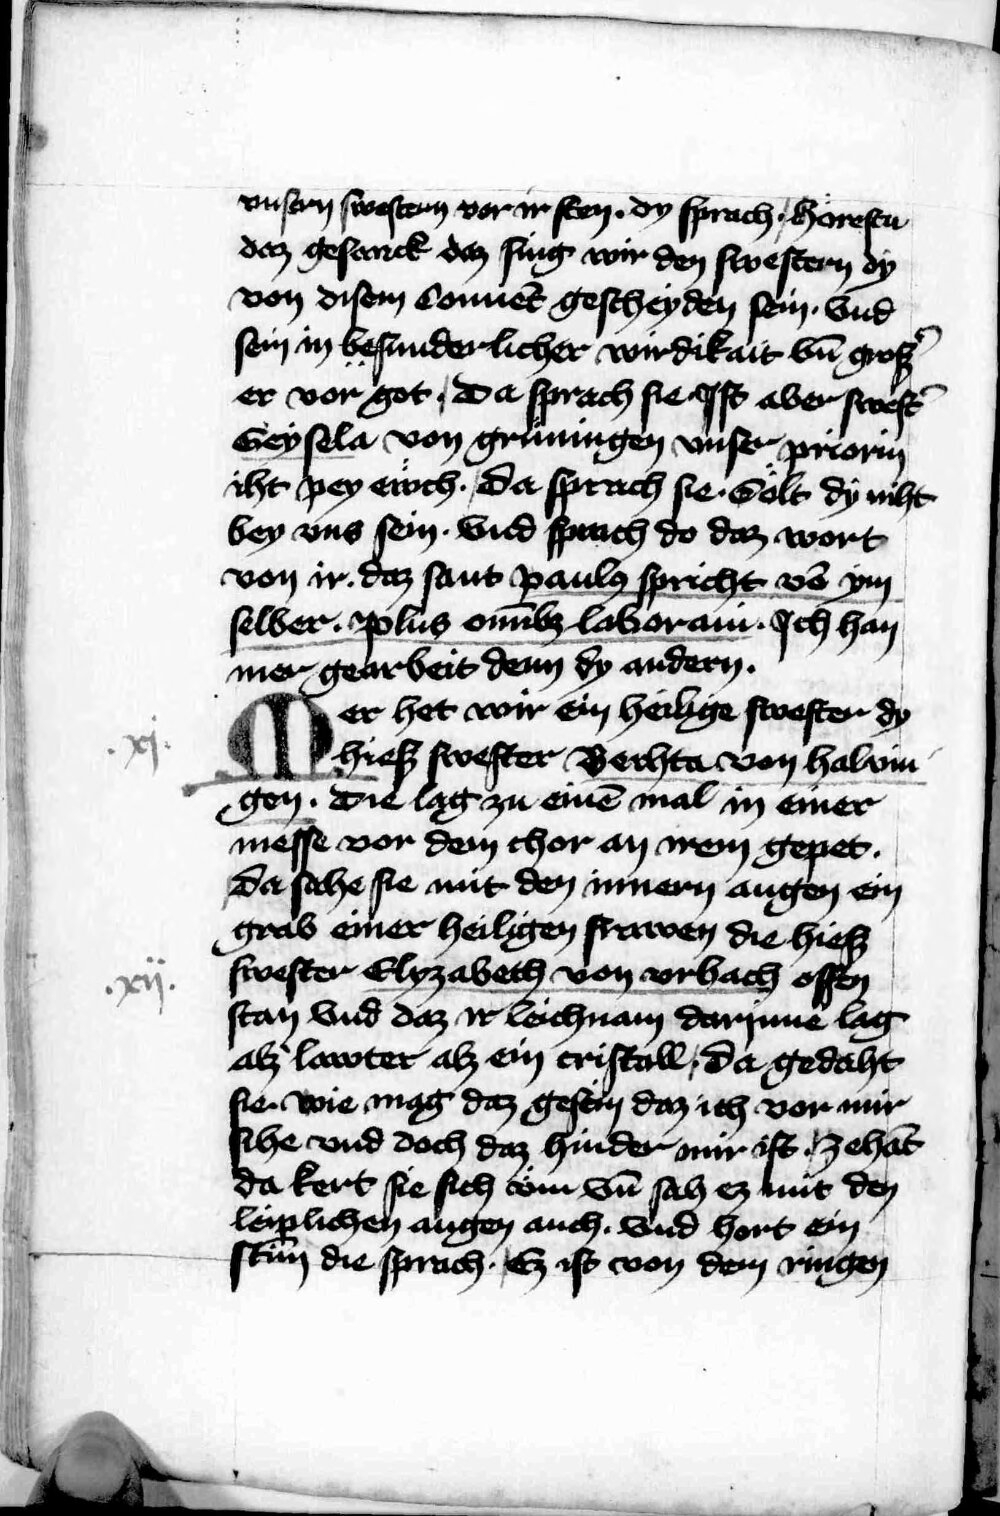 vnsern swestern vor ir sten. dy sprach. Hörestu
daz gesanck daz sing wir den swestern dy
von disem Conuēt gescheyden sein. Vnd
sein in besunderlicher wirdikait vn̄ grosz̄
er vor got. Da sprach sie. Ist aber swest̄
Geysela von grüningen vnser priorin
iht pey ewch. Da sprach sie. Sölt dy niht
bey vns sein. Vnd sprach do daz wort
von ir. daz sant paulꝰ spricht vō ym
selber. Plus omībꝫ laboraui. Ich han
mer gearbeit denn dy andern.
.xj. Mer het wir ein heilige swester dy
hiesz swester Berhta von halvin
gen. Die lag zu einē mal in einer
messe vor dem chor an irem gepet.
Da sahe sie mit den innern augen ein
grab einer heiligen frawen die hiesz
.xij. swester Elyzabeth von vrbach offen
stan Vnd daz ir leichnam darinne lag
alz lawter alz ein cristall. Da gedaht
sie. wie mag daz gesein daz ich vor mir
sihe vnd doch daz hinder mir ist. Zehāt
da kert sie sich vm vn̄ sah ez mit den
leiplichen augen auch. Vnd hort ein
stim̄ die sprach. Ez ist von dem ringen